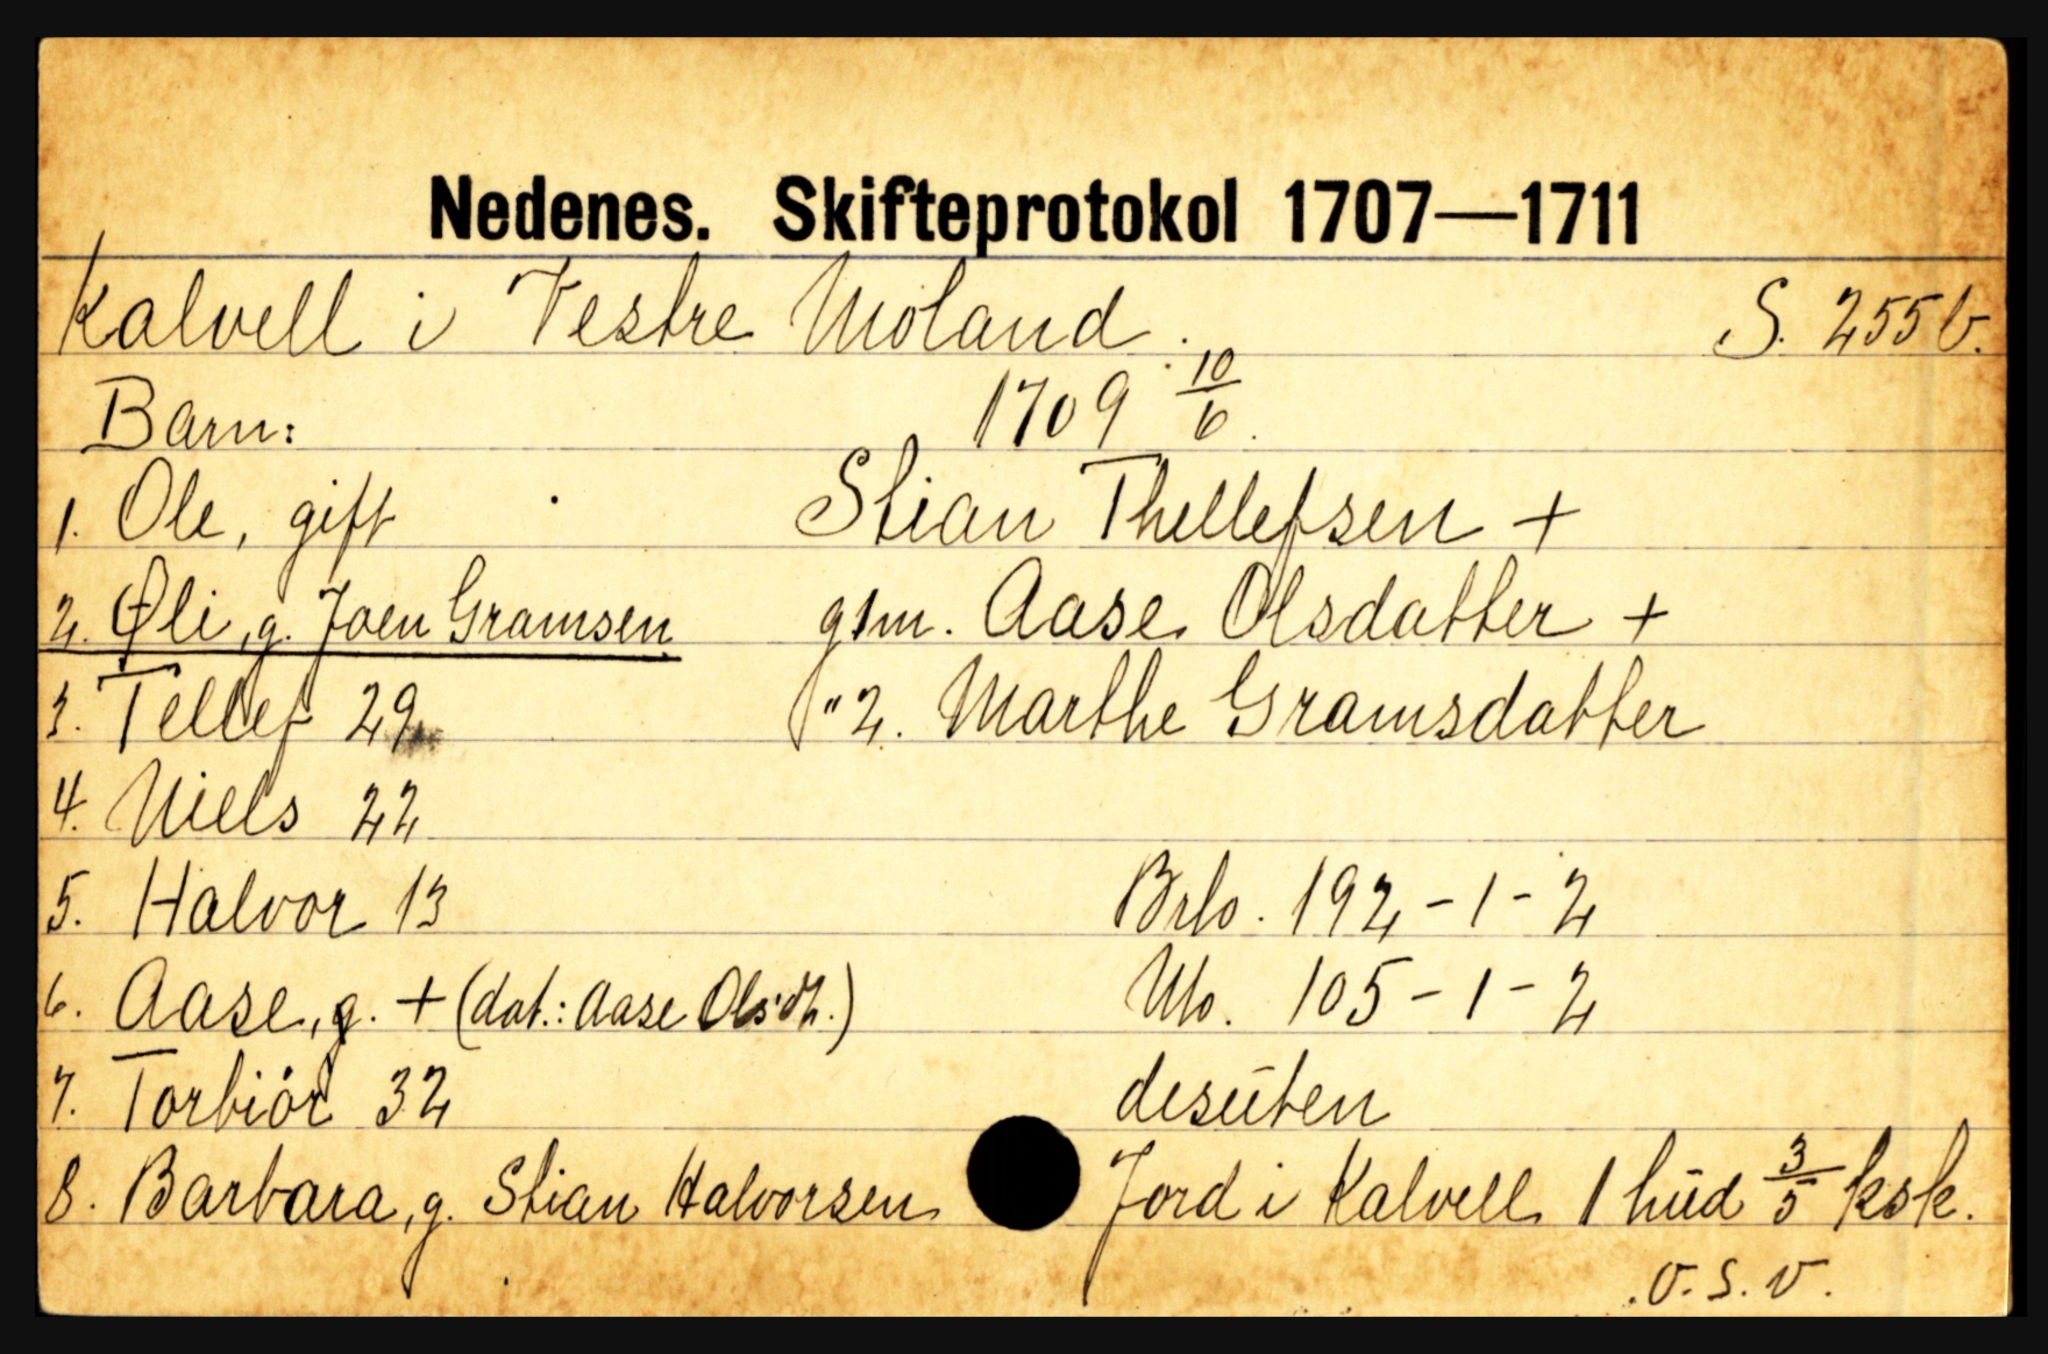 Nedenes. Skifteprotokol 1707—1711
Kalvell i Vestre Moland. S. 255b.
Barn: 1709 10/6.
1. Ole, gift Stian Thellefsen +
2. Øli, g. Joen Gramsen g1m. Aase Olsdatter +
3. Tellef 29 " 2. Marthe Gramsdatter
4. Niels 22
5. Halvor 13 Brb. 192-1-2
6. Aase, g. + (dat.: Aase Olsdt.) Mo. 105-1-2
7. Torbiör 32 desūten
8. Barbara, g. Stian Halvorsen Jord i Kalvell 1 hūd 3/5 ksk.
o.s.v.